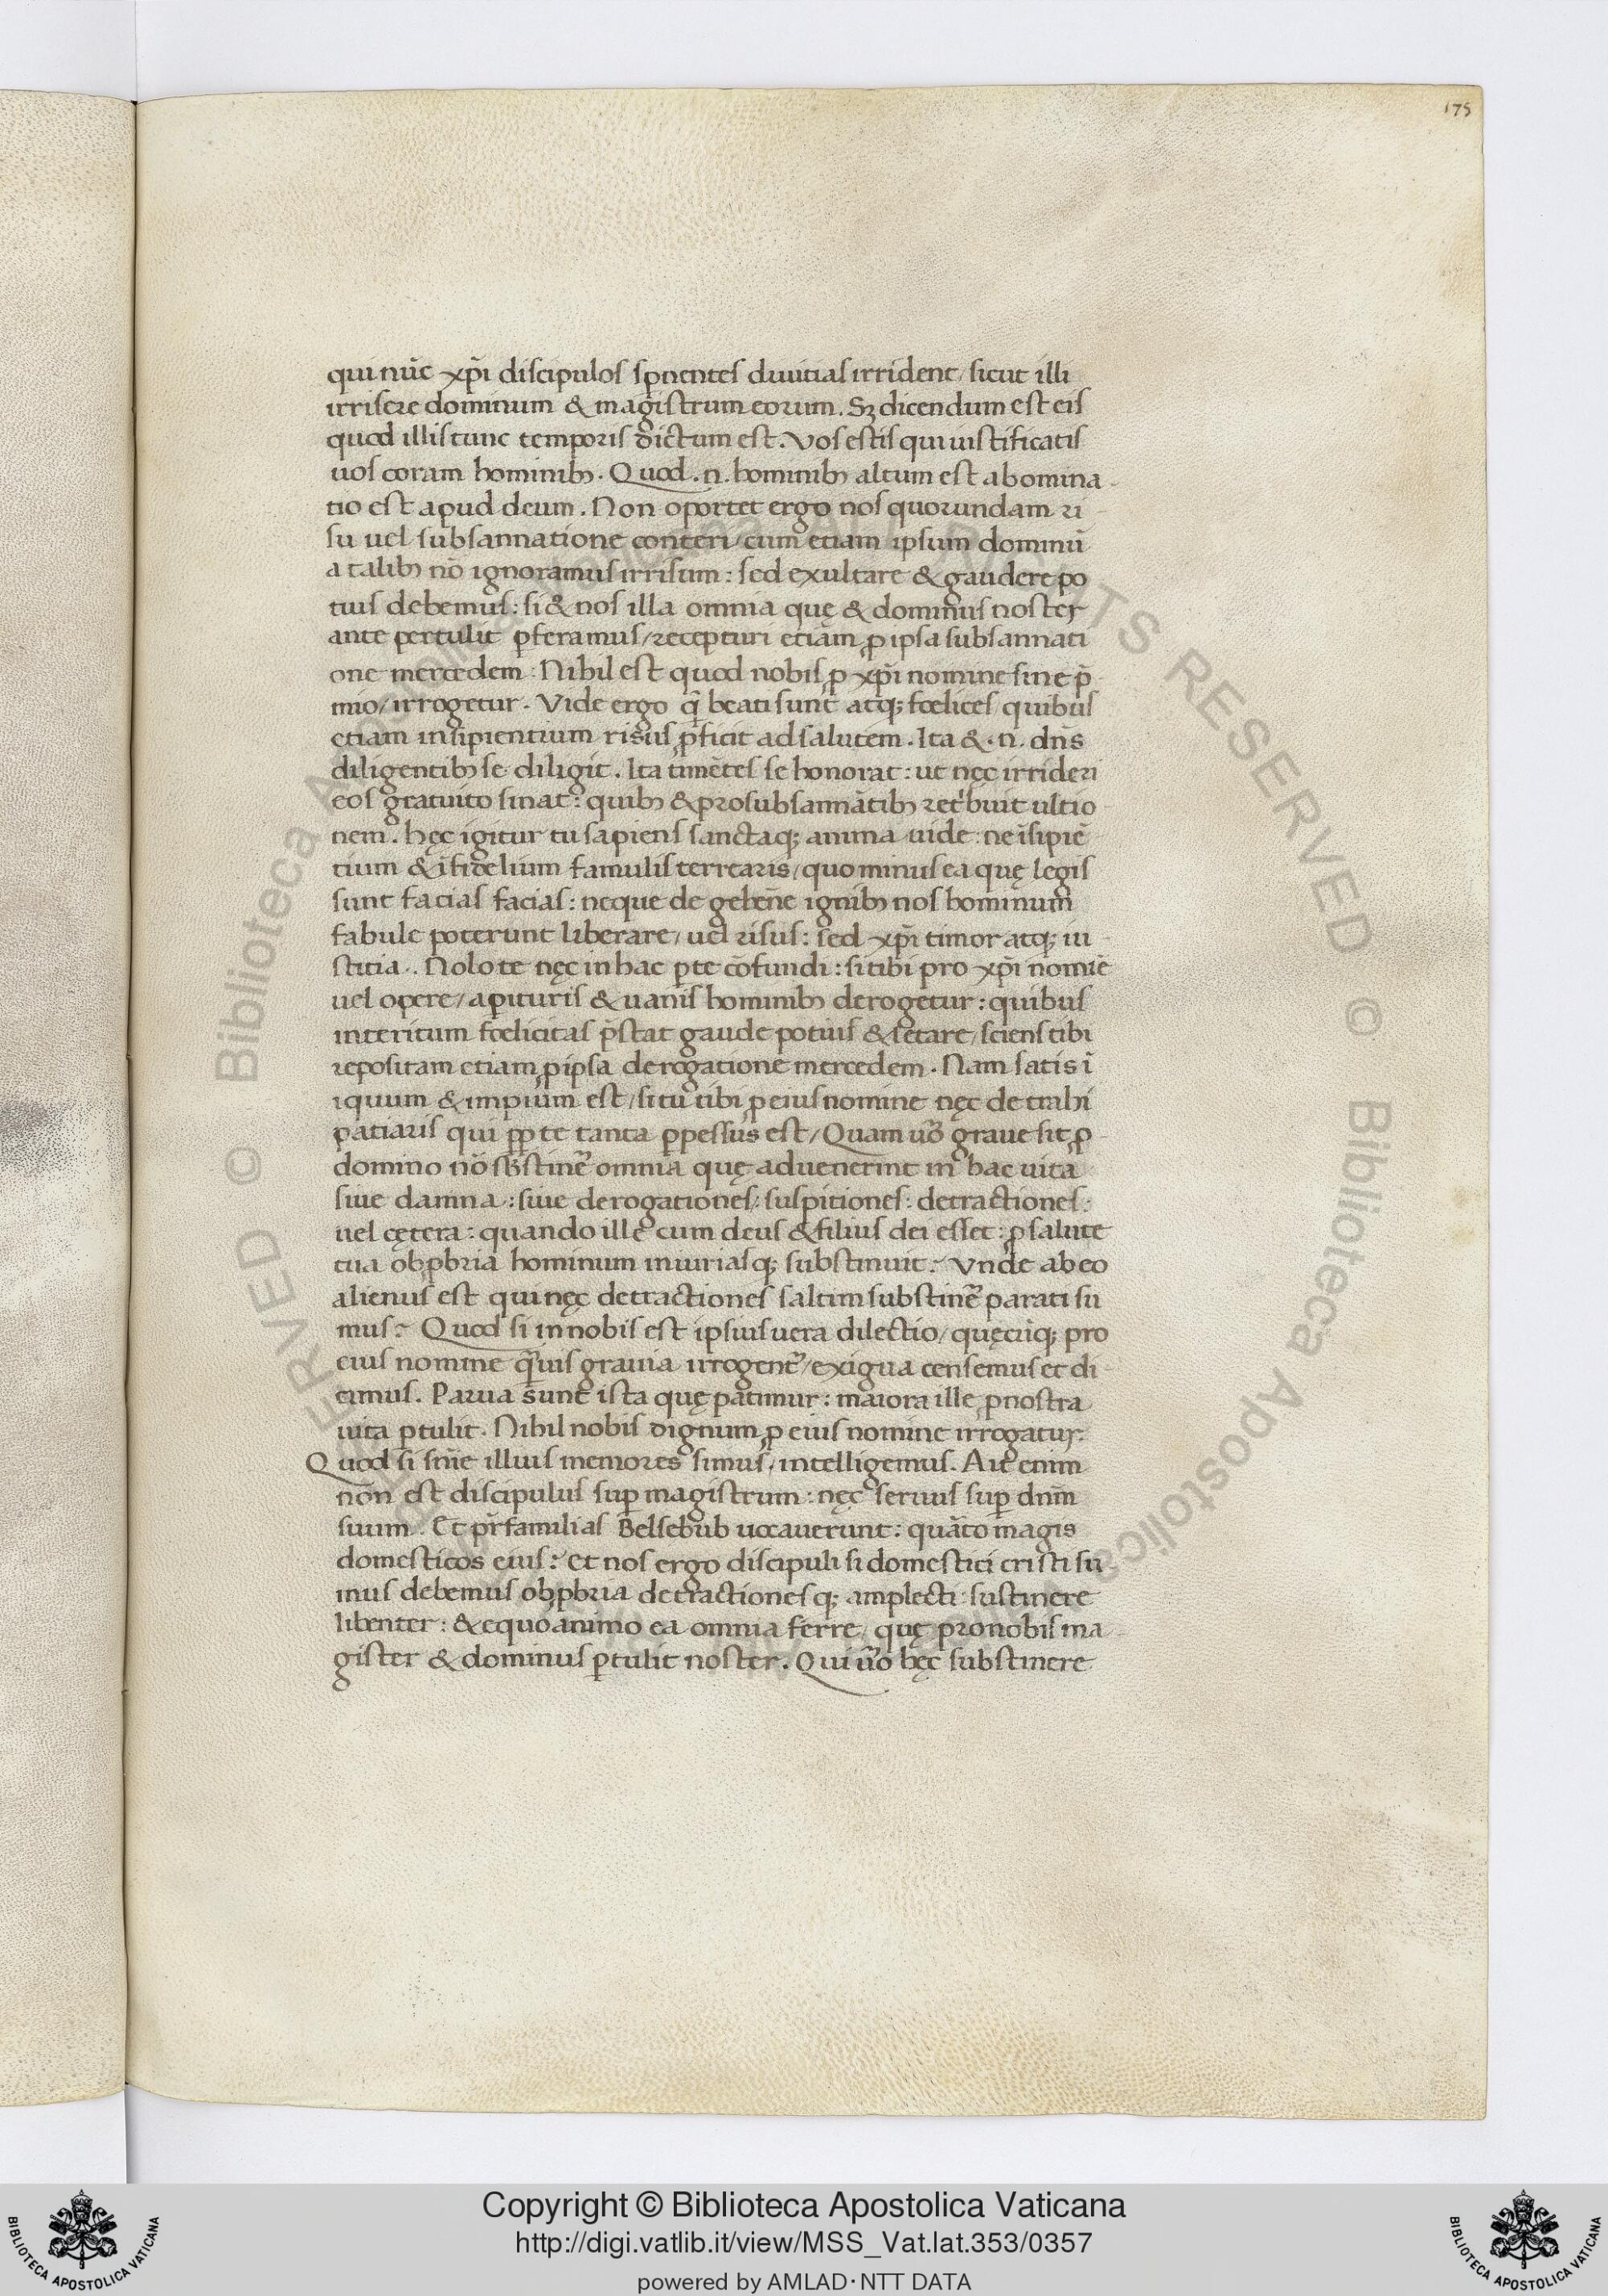 175
qui nūc xp̄i discipulos sp̱nentes diuitias irrident / sicut illi
irrisere dominum & magistrum eorum. Sꝫ dicendum est eis
quod illis tunc temporis dictum est. Vos estis qui iustificatis
uos coram hominibꝫ. Quod .n. hominibꝫ altum est abomina-
tio est apud deum. Non oportet ergo nos quorundam ri-
su uel subsannatione conteri / cum etiam ipsum dominū
a talibꝫ nō ignoramus irrisum: sed exultare & gaudere po
tius debemus: si & nos illa omnia quę & dominus noster
ante pertulit ꝑferamus / recepturi etiam ꝓ ipsa subsannati
one mercedem: Nihil est quod nobis ꝓ xp̄i nomine sine p̄-
mio / irrogetur. Vide ergo q̄ beati sunt atqꝫ foelices / quibus
etiam insipientium risus ꝓficit ad salutem. Ita & .n. dn̄s
diligentibꝫ se diligit. Ita timētes se honorat: ut nęc irrideri
eos gratuito sinat: quibꝫ & pro subsannātibꝫ retⁱbuit ultio
nem. Hęc igitur tu sapiens sanctaqꝫ anima uide: ne īsipiē-
tium & īfidelium famulis terrearis / quo minus ea quę legis
sunt facias facias: neque de gehēne ignibꝫ nos hominum
fabule poterunt liberare / uel risus: sed xp̄i timor atqꝫ iu-
stitia. Nolo te nęc in hac ꝑte cōfundi: si tibi pro xp̄i nomīe
uel opere / a ꝑituris & uanis hominibꝫ derogetur: quibus
interitum foelicitas p̄stat gaude potius & letare / sciens tibi
repositam etiam ꝓ ipsa derogatione mercedem. Nam satis ī
iquum & impium est / si tu tibi ꝓ eius nomine nęc detrahi
patiaris qui ꝓꝑ te tanta ꝑpessus est / Quam uō graue sit ꝓ-
domino nō sb̄stinē omnia quę aduenerint in hac uita
siue damna: siue derogationes: suspitiones: detractiones:
uel cętera: quando ille cum deus & filius dei esset: ꝓ salute
tua obꝓbria hominum iniuriasqꝫ substinuit? Vnde ab eo
alienus est qui nęc detractiones saltim substinē parati su
mus? Quod si in nobis est ipsius uera dilectio / quęcūqꝫ pro
eius nomine q̄uis grauia irrogent᷑ / exigua censemus et di-
cimus. Parua sunt ista quę patimur: maiora ille ꝓ nostra
uita ꝑtulit. Nihil nobis dignum ꝓ eius nomine irrogatur.
Quod si sn̄ie illius memores simus / intelligemus. Ait enim
non est discipulus suꝑ magistrum: nęc seruus suꝑ dn̄m
suum. Et pr̄familias Belsebub uocauerunt: quāto magis
domesticos eius? Et nos ergo discipuli si domestici cristi su
mus debemus obꝓbria detractionesqꝫ amplecti: sustinere
libenter: & equo animo ea omnia ferre / quę pro nobis ma-
gister & dominus ꝑtulit noster. Qui uō hęc substinere
Copyright © Biblioteca Apostolica Vaticana
http://digi.vatlib.it/view/MSS_Vat.lat.353/0357
powered by AMLAD·NTT DATA
BIBLIOTECA APOSTOLICA VATICANA
BIBLIOTECA APOSTOLICA VATICANA